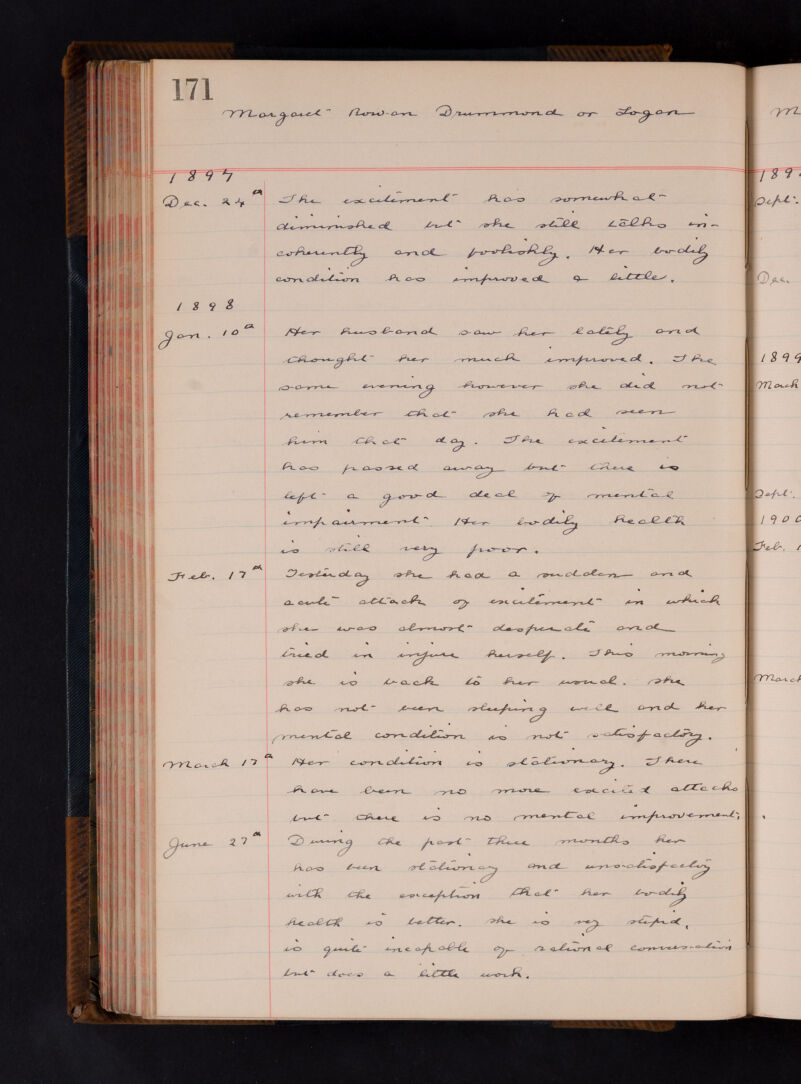 171
Margaret Rowan Drummond or Logan
1897
Dec. 24th The excitement has somewhat
diminished but she still talks in-
coherently and foolishly. Her bodily
condition has improved a little.
1898
Jan. 10th Her husband saw her lately and
thought her much improved. The
same evening however she did not
remember that she had seen
him that day. The excitement
has passed away but there is
left a good deal of mental
impairment. Her bodily health
is still very poor.
Feb. 17th Yesterday she had a sudden and
acute attack of excitement in which
she was almost desperate and
tried in injure herself. This morning
she is back to her usual. She
has not been sleeping well and her
mental condition is not satisfactory.
March 17th Her condition is stationary. There
have been no more excited attacks
but there is no mental improvement.
June 27th During the past three months her
has been stationary and unsatisfactory
with the exception that her bodily
health is better. She is very stupid,
is quite incapable of rational conversation
but does a little work.
M
189
Sept.
Dec.
1899
March
Sept.
190
Feb. 1
March